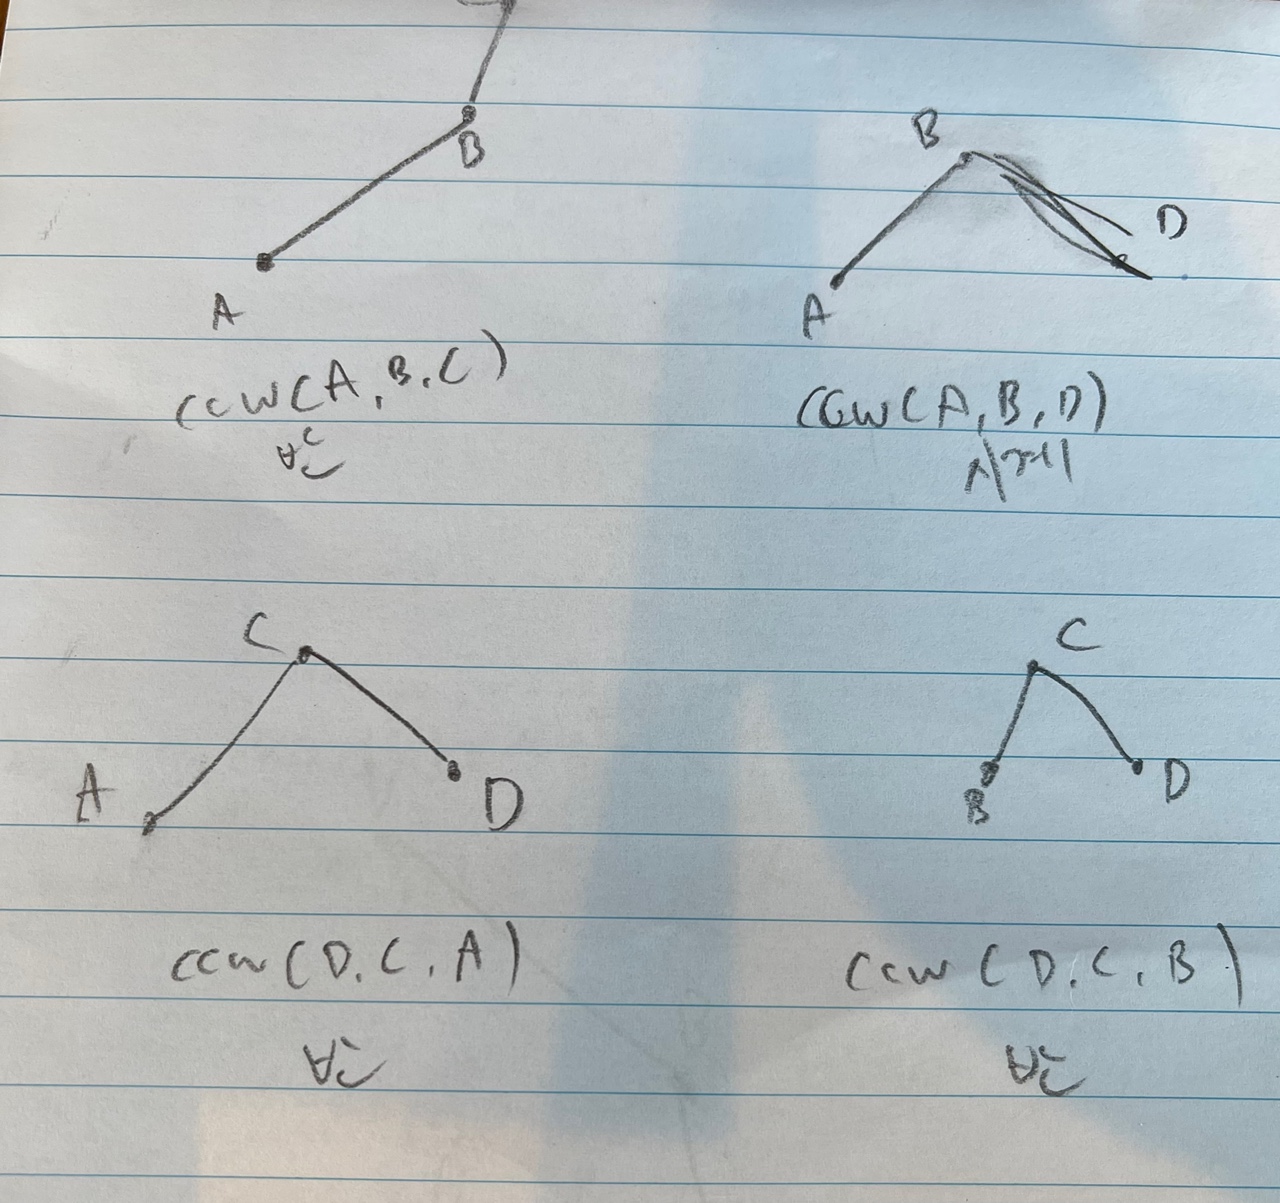 B
A
ccw(A,B,C)
반
B
D
A
ccw(A,B,D)
시계
C
A
D
ccw(D,C,A)
반
C
B
D
ccw(D,C,B)
반